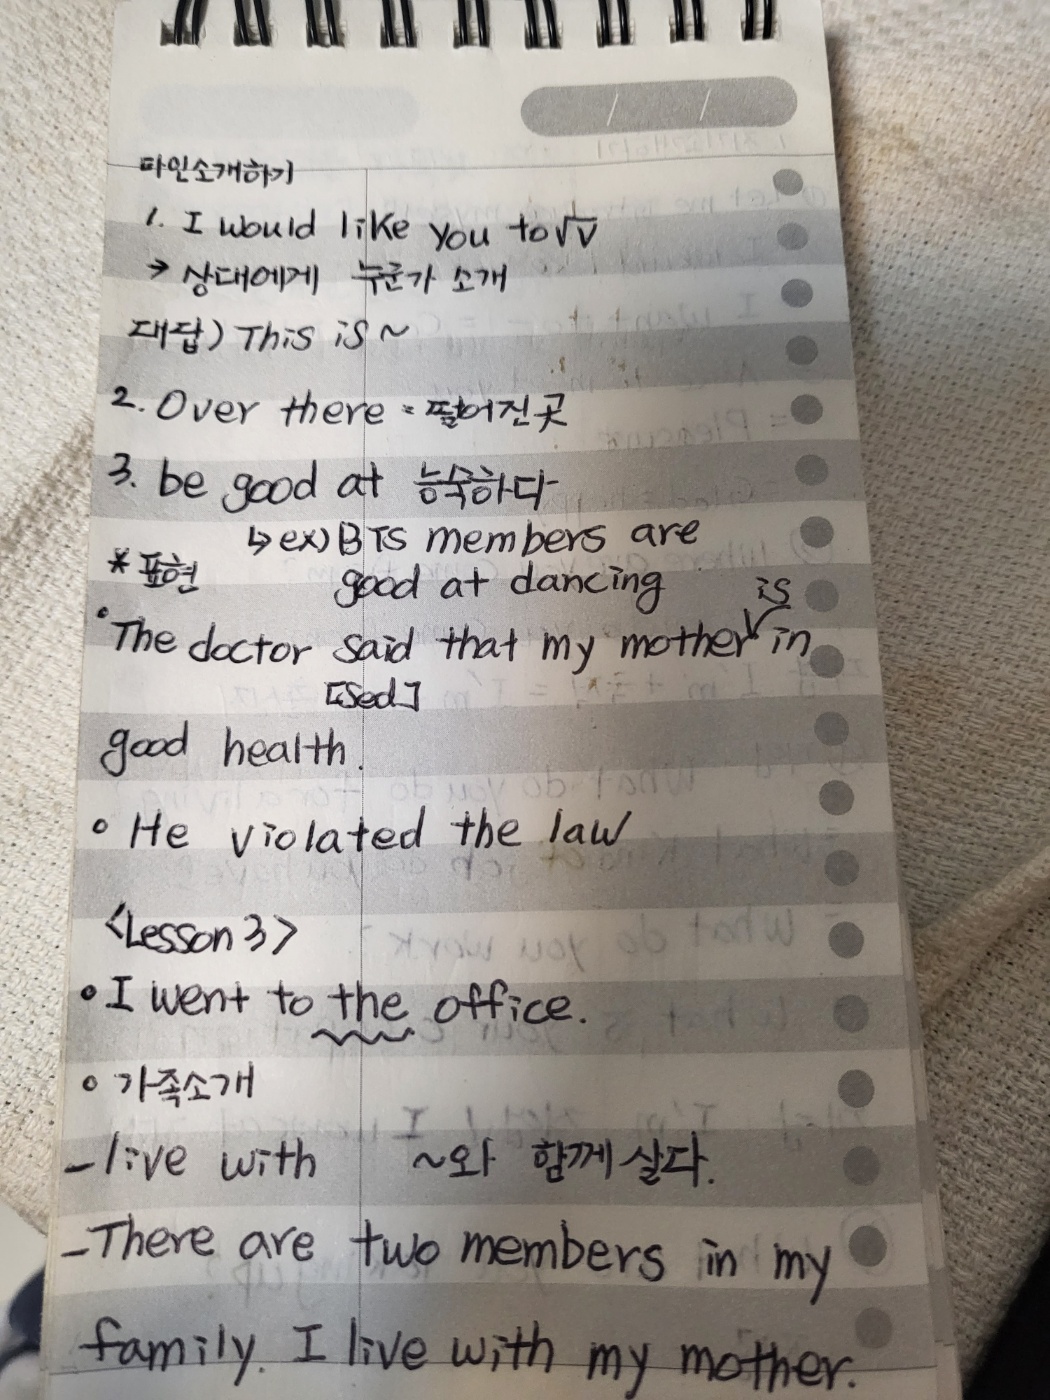 타인소개하기
1. I would like you to √V
→ 상대에게 누군가 소개
대답) This is ~
2. Over there = 떨어진곳
3. be good at 능숙하다
↳ ex) BTS members are
* 표현
good at dancing
is
• The doctor said that my mother in
[sed]
good health.
• He violated the law
<Lesson 3>
• I went to the office.
• 가족소개
- live with ~와 함께 살다.
- There are two members in my
family. I live with my mother.